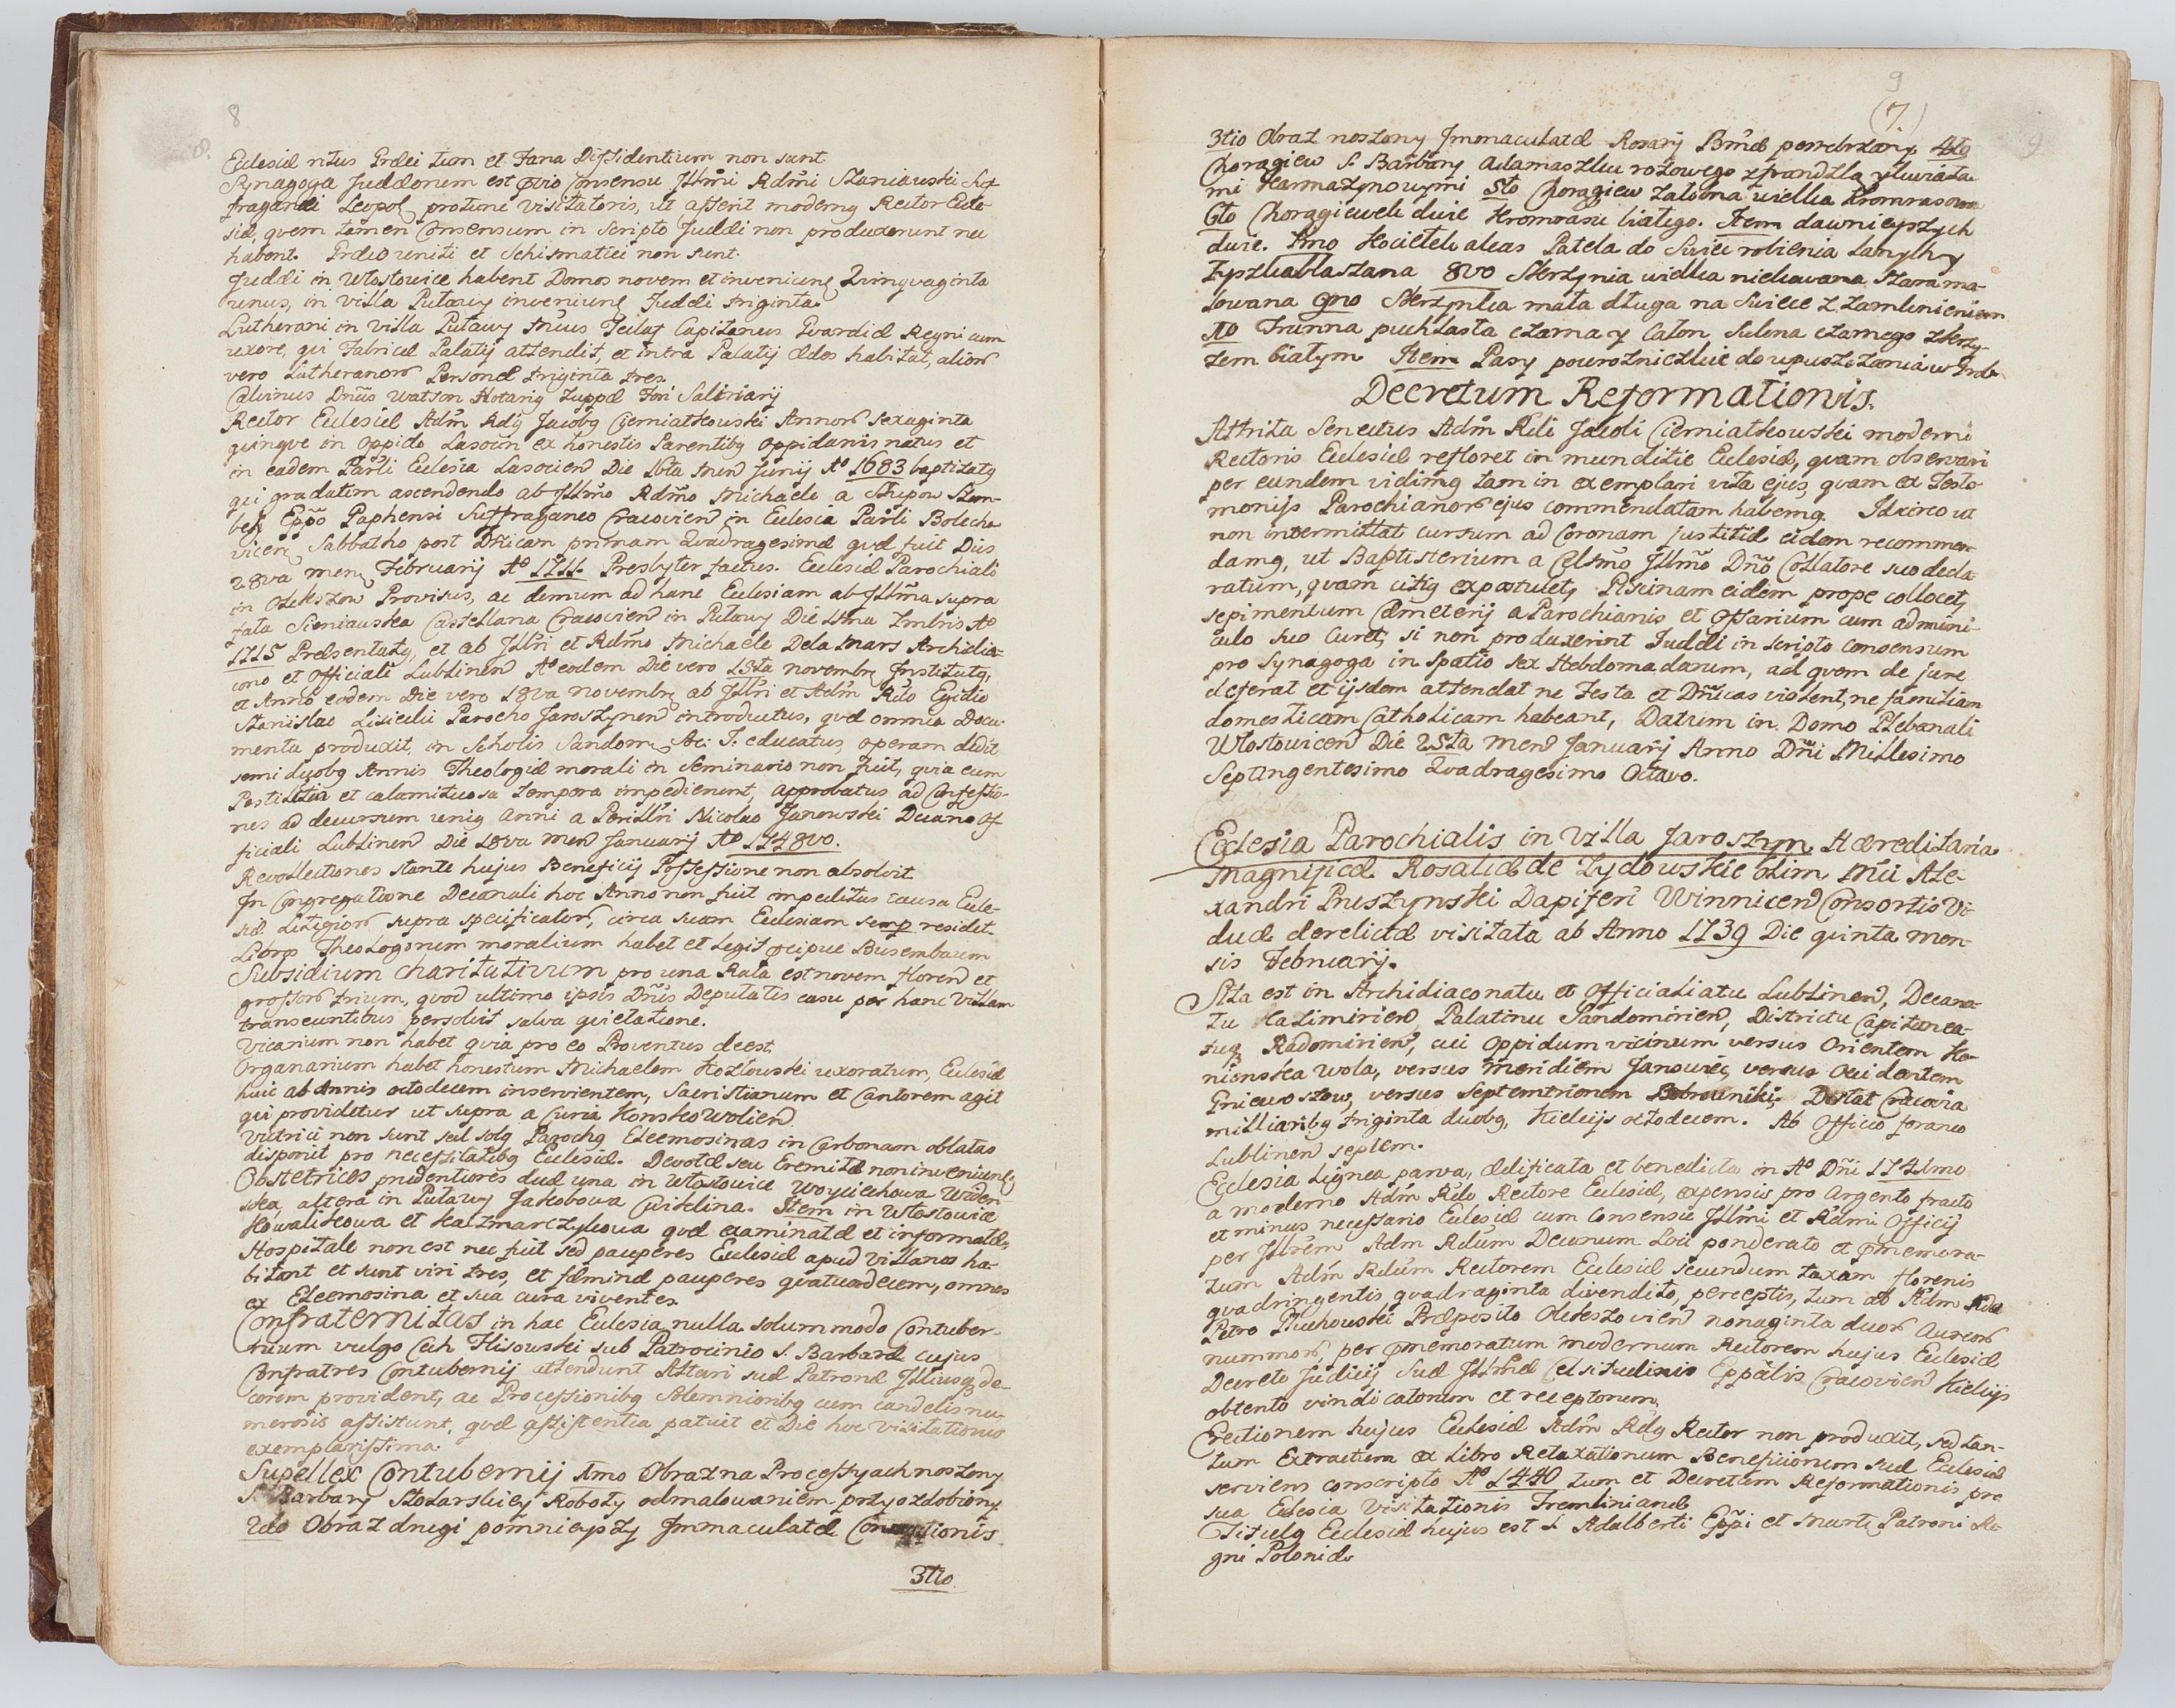 8
8.
Ecclesiæ ritus Grdci tum et Fana Dissidentium non sunt
Synagoga Judæorum est Consensu Illm̃i Rdm̃i Szaniauski Suf
fraganei Leopol protunc visitatoris, ut asserit modernq Rector Eccle
siæ, qvem tamen Consensum in scripto Judæi non produxerunt nec
habent. Grdco uniti et Schismatici non sunt.
Judæi in Włostowice habent Domos novem et Qvinqvaginta
unus, in villa Putawy Judæi triginta
Lutherani in villa Putawy Capitaneus Gvardiæ Regni cum
uxore, qui Fabricæ Palatij attendit, et intra Palatij ædes habitat, aliorꝝ
vero Lutheranorꝝ Personæ triginta tres.
Calvinus Dn̄us Watson Notariq Zuppæ Fori Salinarij
Rector Ecclesiæ Adm̃ Rdq Jacobq Cierniatkouski Annorꝝ Sexaginta
qvinqve in oppido Lasocin ex honestis Parentibq oppidanis natus et
in eadem Par̃li Ecclesia Lasocien Die 16ta Men Junij A⁰ 1683 baptizatq
qui gradatim ascendendo ab Illm̃o Rdm̃o Michaele a Słupow Szem-
bek Ep̃po Paphensi Suffraganeo Cracovien in Ecclesia Par̃li
Sabbatho post Dn̄icam primam Qvadragesimæ qvæ fuit Dies
28va mens Februarij A⁰ 1711. Presbyter factus. Ecclesiæ Parochiali
in Provisus, ac demum ad hanc Ecclesiam ab Illm̃a supra
fata Sieniauska Castellana Cracovien in Putawy Die
1715 Præsentatq, et ab Illr̃i et Rdm̃o Michaele Dela Mars Archidia-
cono et Officiali Lublinen A⁰ eodem Die vero 13ta novembr Institutq,
et Anno eodem Die vero 18va novembr ab Illr̃i et Adm̃ Rdo Egidio
Stanislao Lisiecki Parocho Jaroszynen introductus, qvæ omnia Docu-
menta produxit, in Scholis Sandom Soc: J. educatus, operam dedit
semi duobq Annis Theologiæ morali in Seminario non fuit, qvia eum
Pestilitia et calamitosa tempora impedierunt, approbatus ad Confessio-
nes ad decursum unig Anni a Perillr̃i Nicolao Janowski Decano of
ficiali Lublinen Die 18va Men Januarij A⁰ 1748vo.
Recollectiones stante hujus Beneficij Possessione non absolvit
In Congregatione Decanali hoc Anno non fuit impeditus causa Eccle-
siæ Litigiorꝝ supra specificatorꝝ, circa suam Ecclesiam semp residet
Libros Theologorum moralium habet et legit Busembaum
Subsidium charitativum pro una Rata est novem floren et
grossorꝝ trium, qvod ultimo ipsis Dn̄is Deputatis casu per hanc villam
transeuntibus persolvit salva qvietatione.
Vicarium non habet qvia pro eo Proventus deest.
Organarium habet honestum Michaelem Kozłouski uxoratum, Ecclesiæ
huic ab Annis octodecem inservientem, Sacristianum et Cantorem agit
qui providetur ut supra a Curia Konskowolien
Vitrici non sunt sed solq Parochq Eleemosinas in Carbonam oblatas
disponit pro necessitatibq Ecclesiæ. Devotæ seu Eremitæ non
Obstetrices prudentiores duæ una in Włostowice Woyciechowa Widen
ska, altera in Putawy Jakobowa Cwiklina. Item in Włostowice
Kowalikowa et Kaczmarczykowa qvæ examinatæ et informatæ.
Hospitale non est nec fuit sed pauperes Ecclesiæ apud Villanos ha-
bitant et sunt viri tres, et fæminæ pauperes qvatuordecem, omnes
ex Eleemosina et sua cura viventes
Confraternitas in hac Ecclesia nulla solummodo Contuber-
nium vulgo Cech Flisowski sub Patrocinio S. Barbaræ cujus
Confratres Contubernij attendunt Altari suæ Patronæ Illiusq de-
corem provident, ac Processionibq Solemnioribq cum candelis nu-
merosis assistunt, qvæ assistentia patuit et Die hoc visitationis
exemplarissima.
Supellex Contubernij 1mo Obraz na Processyach noszony
S. Barbary Stolarskiey Roboty odmalowaniem przyozdobiony
2do Obraz drugi pomnieyszy Immaculatæ Conceptionis
3tio
9
(7.)
9
3tio Obraz noszony Immaculatæ Rosarij Bm̃æ posrebrzany 4to
Choragiew S. Barbary adamaszku rożowego z frandzlą y kwiata-
mi Karmazynowymi 5to Choragiew żałobna wielka kromrasowa
6to Choragiewek dwie kromrasu białego. Item dawnieyszych
dwie. 7mo Kociełek aleas Patela do Swiec robienia
8vo Skrzynia wielka niekowana Stara ma-
lowana 9no Skrzynka mała długa na Swiece z zamknieniem
10 Trunna puchlasta czarna y Całon Sukna czarnego z krzy-
żem białym Item Pasy powrozniczkie do upuszczania w Grob
Decretum Reformationis.
Attrita Senectus Adm̃ Rdi Jacobi Cierniatkowski moderni
Rectoris Ecclesiæ refloret in munditie Ecclesiæ, qvam observari
per eundem vidimq tam in exemplari vita ejus, qvam ex Testi
monijs Parochianorꝝ ejus commendatam habemq. Idcirco ut
non intermittat cursum ad Coronam justitiæ eidem recommen-
damq, ut Baptisterium a Celsm̃o Illm̃o Dn̄o Collatore suo decla-
ratum, qvam citiq expostulet, Piscinam eidem prope collocet,
sepimentum Cæmeterij a Parochianis et Ossarium cum admini-
culo suo Curet, si non produxerint Judæi in scripto consensum
pro Synagoga in spatio sex Hebdomadarum, ad qvem de jure
deferat et ijsdem attendat ne Festa et Dn̄icas violent, ne familiam
domesticam Catholicam habeant, Datum in Domo Plebanali
Włostowicen Die 25ta Men Januarij Anno Dn̄i Millesimo
Septingentesimo Qvadragesimo Octavo.
Ecclesia Parochialis in Villa Jaroszyn Hæreditaria
Magnificæ Rosaliæ de Zydowskie olim Mci Ale-
xandri Pruszynski Dapiferi Winnicen Consortis Vi-
duæ derelictæ visitata ab Anno 1739 Die qvinta men-
sis Februarij.
Sita est in Archidiaconatu et Officialiatu Lublinen, Decana-
tu Kazimirien, Palatinu Sandomirien, Districtu Capitanea-
tuq Radomirien, cui Oppidum vicinum versus Orientem Ko-
nienska Wola, versus meridiem Janowiec, versus Occidentem
Gniewoszow, versus Septemtrionem Bobrowniki, Distat Cracovia
milliaribq triginta duobq, Kielcijs octodecem. Ab Officio foraneo
Lublinen septem.
Ecclesia Lignea parva, ædificata et benedicta in A⁰ Dn̄i 1741mo
a moderno Adm̃ Rdo Rectore Ecclesiæ, expensis pro Argento fracto
et minus necessario Ecclesiæ cum Consensu Illm̃i et Rdm̃i Officij
per Illr̃em Adm Rdum Decanum Loci ponderato et
tum Adm̃ Rdum Rectorem Ecclesiæ secundum taxam florenis
qvadringentis qvadraginta divendito, perceptis, tum ab Adm Rdo
Petro Præposito nonaginta duorꝝ Aureorꝝ
nummorꝝ, per modernum Rectorem hujus Ecclesiæ
Decreto Judicij Suæ Illm̃æ Celsitudinis Epp̃alis Cracovien Kielcijs
obtento vindicatorum et receptorum.
Erectionem hujus Ecclesiæ Adm̃ Rdq Rector non produxit, sed tan-
tum Extractum ex Libro Retaxationum Beneficiorum suæ Ecclesiæ
serviens conscripto A⁰ 1440 tum et Decretum Reformationis pro
sua Eclesia Visitationis Tremliniane
Titulq Ecclesiæ hujus est S. Adalberti Ep̃pi et Mart Patroni Re-
gni Poloniæ